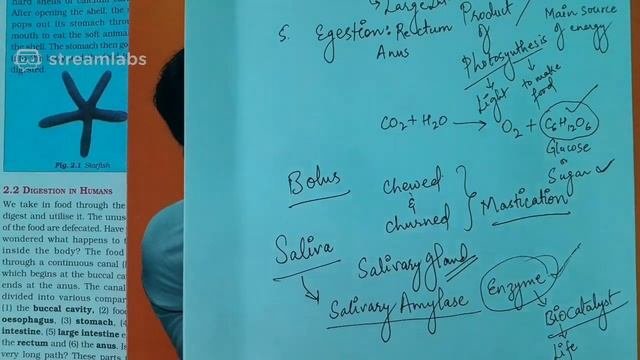 hard shells of calcium carb
After opening the shell, the s
pops out its stomach throu
mouth to eat the soft animal
the shell. The stomach then go
digested.
streamlabs
Fig. 2.1 Starfish
2.2 DIGESTION IN HUMANS
We take in food through the
digest and utilise it. The unus
of the food are defecated. Have
wondered what happens to t
inside the body? The food
through a continuous canal (
which begins at the buccal ca
ends at the anus. The canal
divided into various compar
(1) the buccal cavity, (2) food
oesophagus, (3) stomach, (4
intestine, (5) large intestine e
the rectum and (6) the anus. Is
very long path? These parts t
5. Egestion: Rectum
Anus
Product
of
Photosynthesis
Light
to make
food
Main source
of energy
CO2 + H2O → O2 + C6H12O6
Glucose
or
Sugar
Bolus
chewed
&
churned
Mastication
Saliva
Salivary gland
Salivary Amylase
Enzyme
Biocatalyst
Life